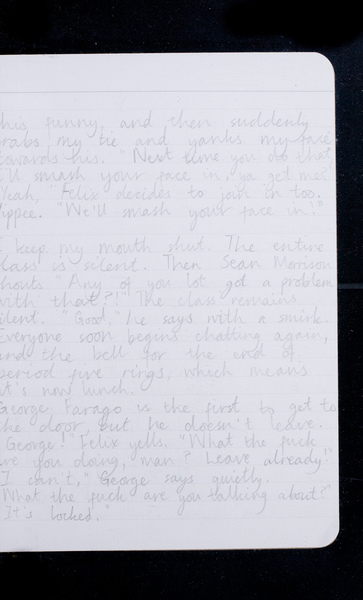 his funny, and then suddenly
grabs my tie and yanks my face
towards his. "Next time you do that
I'll smash your face in, ya get me?"
"Yeah," Felix decides to join in too.
Yippee. "We'll smash your face in!"
I keep my mouth shut. The entire
class is silent. Then Sean Morrison
shouts "Any of you lot got a problem
with that?!" The class remains
silent. "Good," he says with a smirk.
Everyone soon begins chatting again,
and the bell for the end of
period five rings, which means
it's now lunch.
George Farago is the first to get to
the door, but he doesn't leave.
"George!" Felix yells. "What the fuck
are you doing, man? Leave already!"
"I can't," George says quietly.
"What the fuck are you talking about?"
"It's locked."